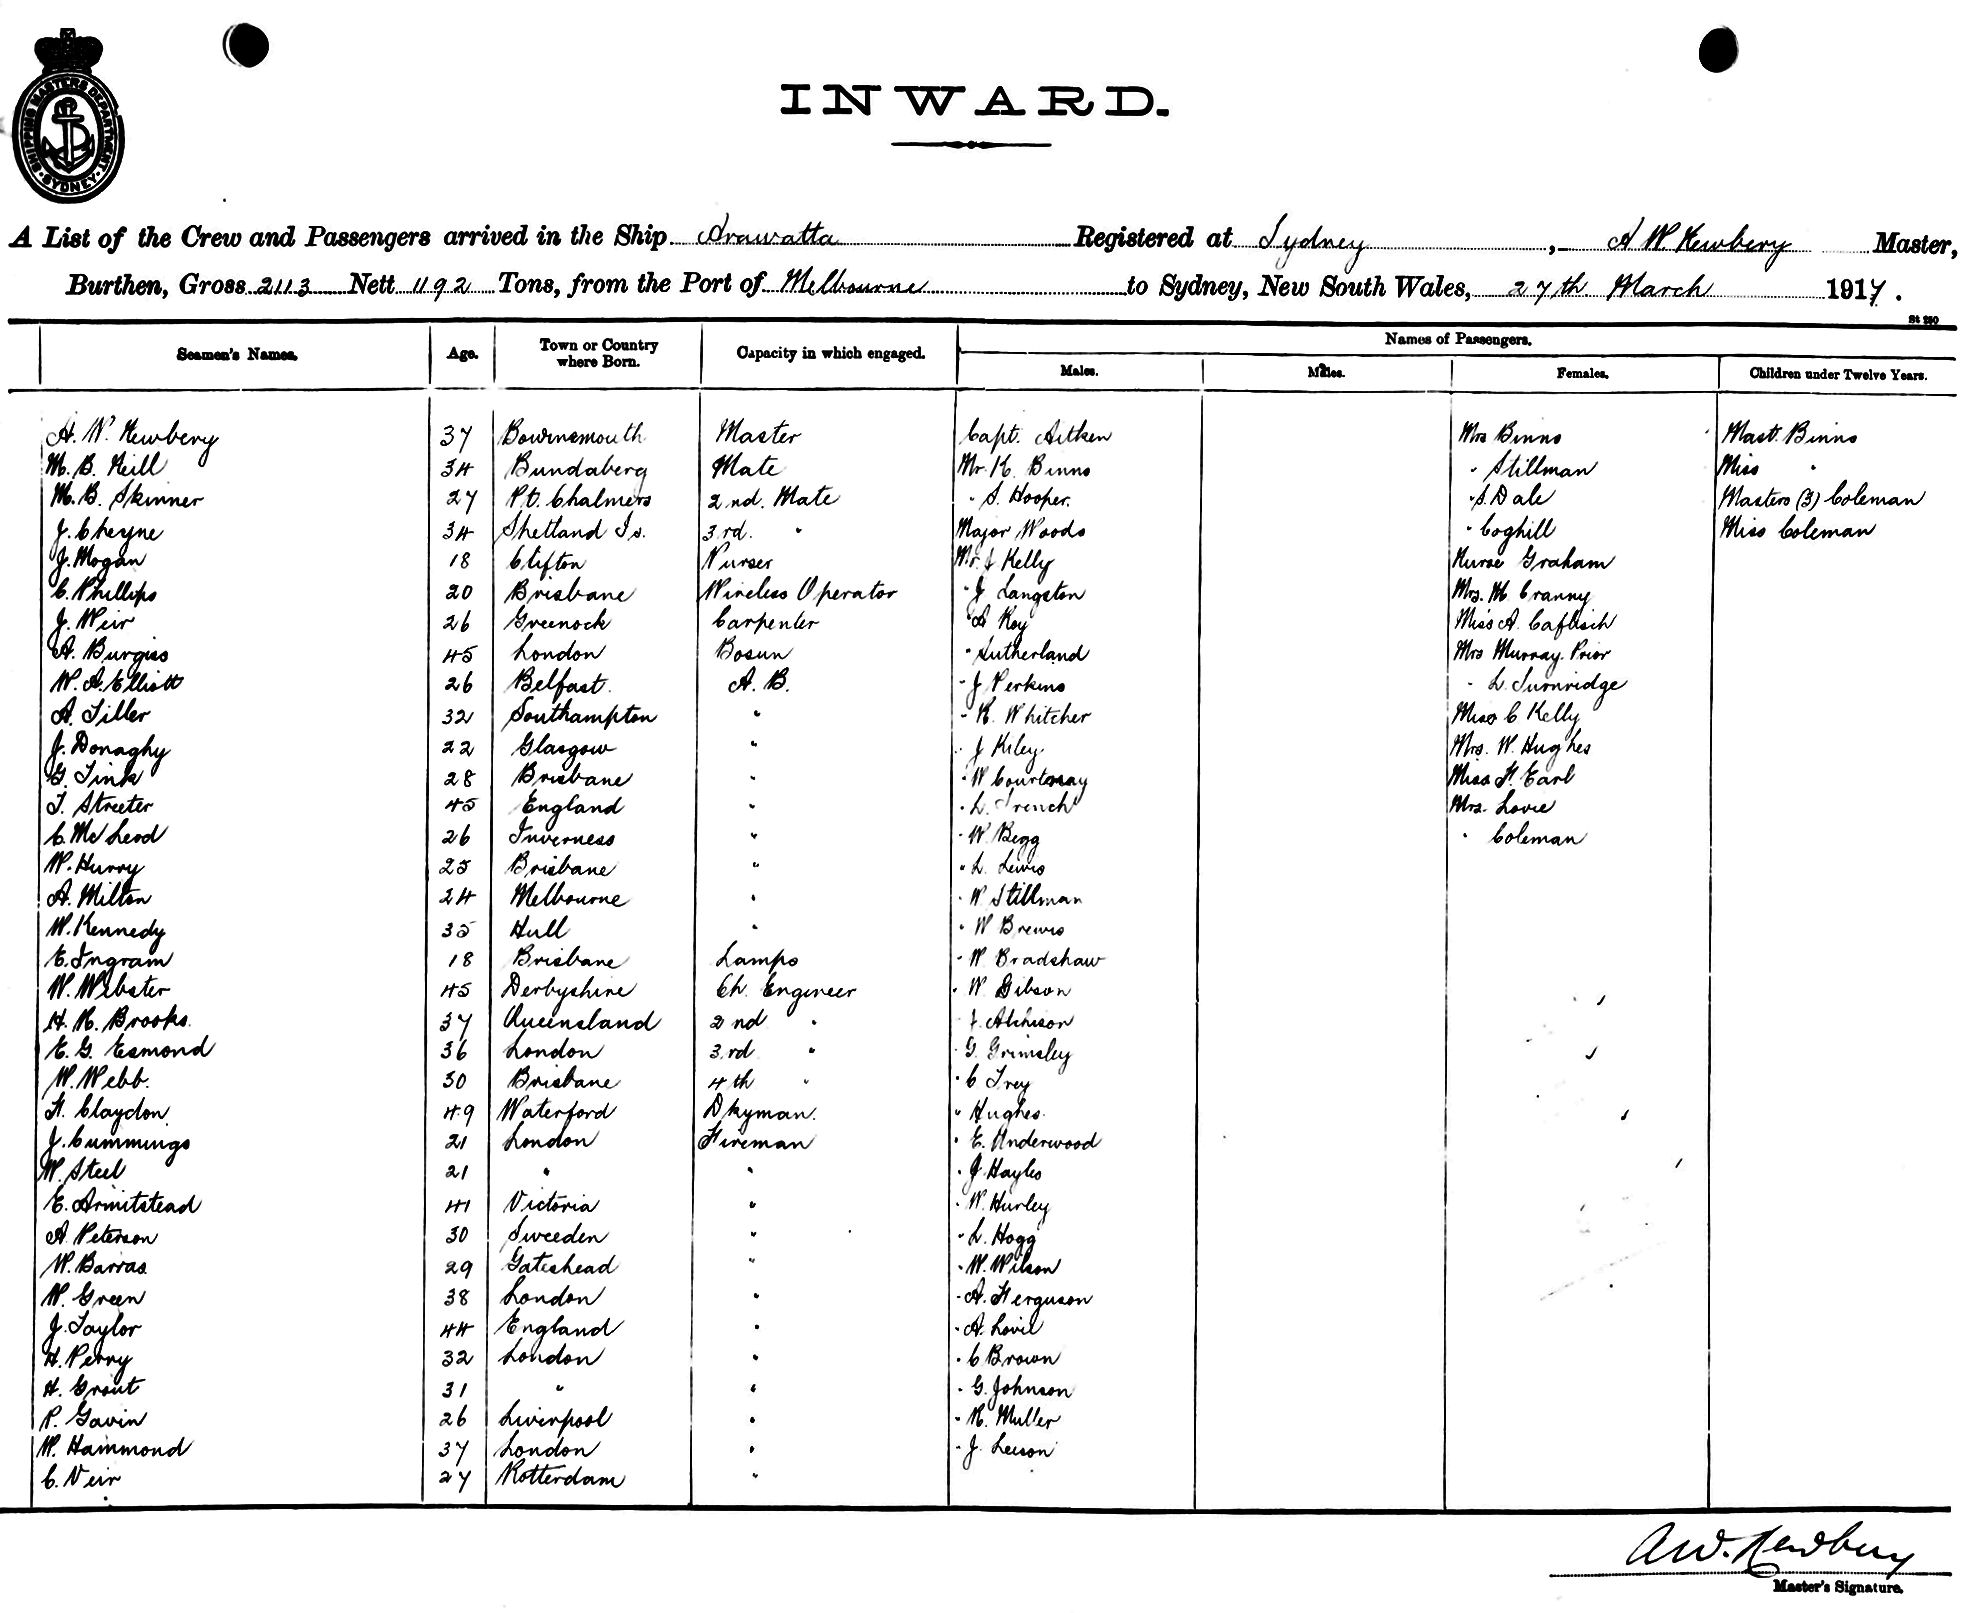 SHIPPING MASTERS DEPARTMENT
SYDNEY
INWARD.
A List of the Crew and Passengers arrived in the Ship Arawatta Registered at Sydney, A W Newbery Master,
Burthen, Gross 2113 Nett 1192 Tons, from the Port of Melbourne to Sydney, New South Wales, 27th March 1917.
St 280
Seamen's Names. Age. Town or Country where Born. Capacity in which engaged. Names of Passengers.
Males. Males. Females. Children under Twelve Years.
A. W. Newbery 37 Bournemouth Master Capt. Aitken Mrs Binns Mast. Binns
M. B. Neill 34 Bundaberg Mate Mr. K. Binns " Stillman Miss "
M. B. Skinner 27 Pt. Chalmers 2nd. Mate " S. Hooper. " S. Dale Masters (3) Coleman
J. Cheyne 34 Shetland Is. 3rd. " Major Woods " Coghill Miss Coleman
J. Mogan 18 Clifton Purser Mr. J Kelly Nurse Graham
C. Phillips 20 Brisbane Wireless Operator " J Langston Mrs. M. Cranny
J. Weir 26 Greenock Carpenter " A Roy Miss A. Caflisch
A. Burgiss 45 London Bosun " Sutherland Mrs Murray. Prior
W. A. Elliott 26 Belfast. A. B. " J Perkins " L. Turnridge
A. Tiller 32 Southampton " " R. Whitcher Miss C Kelly
J. Donaghy 22 Glasgow " " J Kiley Mrs. W. Hughes
G. Tink 28 Brisbane " " W Courtenay Miss F. Earl
T. Streeter 45 England " " L. French Mrs. Lovie
C. McLeod 26 Inverness " " W Begg " Coleman
W. Hurry 25 Brisbane " " L. Lewis
A. Milton 24 Melbourne " " W Stillman
W. Kennedy 35 Hull " " W Brewis
E. Ingram 18 Brisbane Lamps " W Bradshaw
W. Webster 45 Derbyshire Ch. Engineer " W. Gibson
H. R. Brooks. 37 Queensland 2nd " " Atchison
E. G. Esmond 36 London 3rd " " G. Grimsley
W. Webb. 30 Brisbane 4th " " C Frey
F. Claydon 49 Waterford Dkyman. " Hughes.
J. Cummings 21 London Fireman " E. Underwood
W. Steel 21 " " " J. Hayles
E. Armitstead 41 Victoria " " W. Hurley
A. Peterson 30 Sweeden " " L. Hogg
W. Barras 29 Gateshead " " W. Wilson
W. Green 38 London " " A. Ferguson
J. Taylor 44 England " " A. Lovie
H. Perry 32 London " " C Brown
H. Grout 31 " " " G. Johnson
P. Gavin 26 Liverpool " " R. Muller
W. Hammond 37 London " " J. Leeson
C. Veir 27 Rotterdam "
A W. Newbery
Master's Signature.